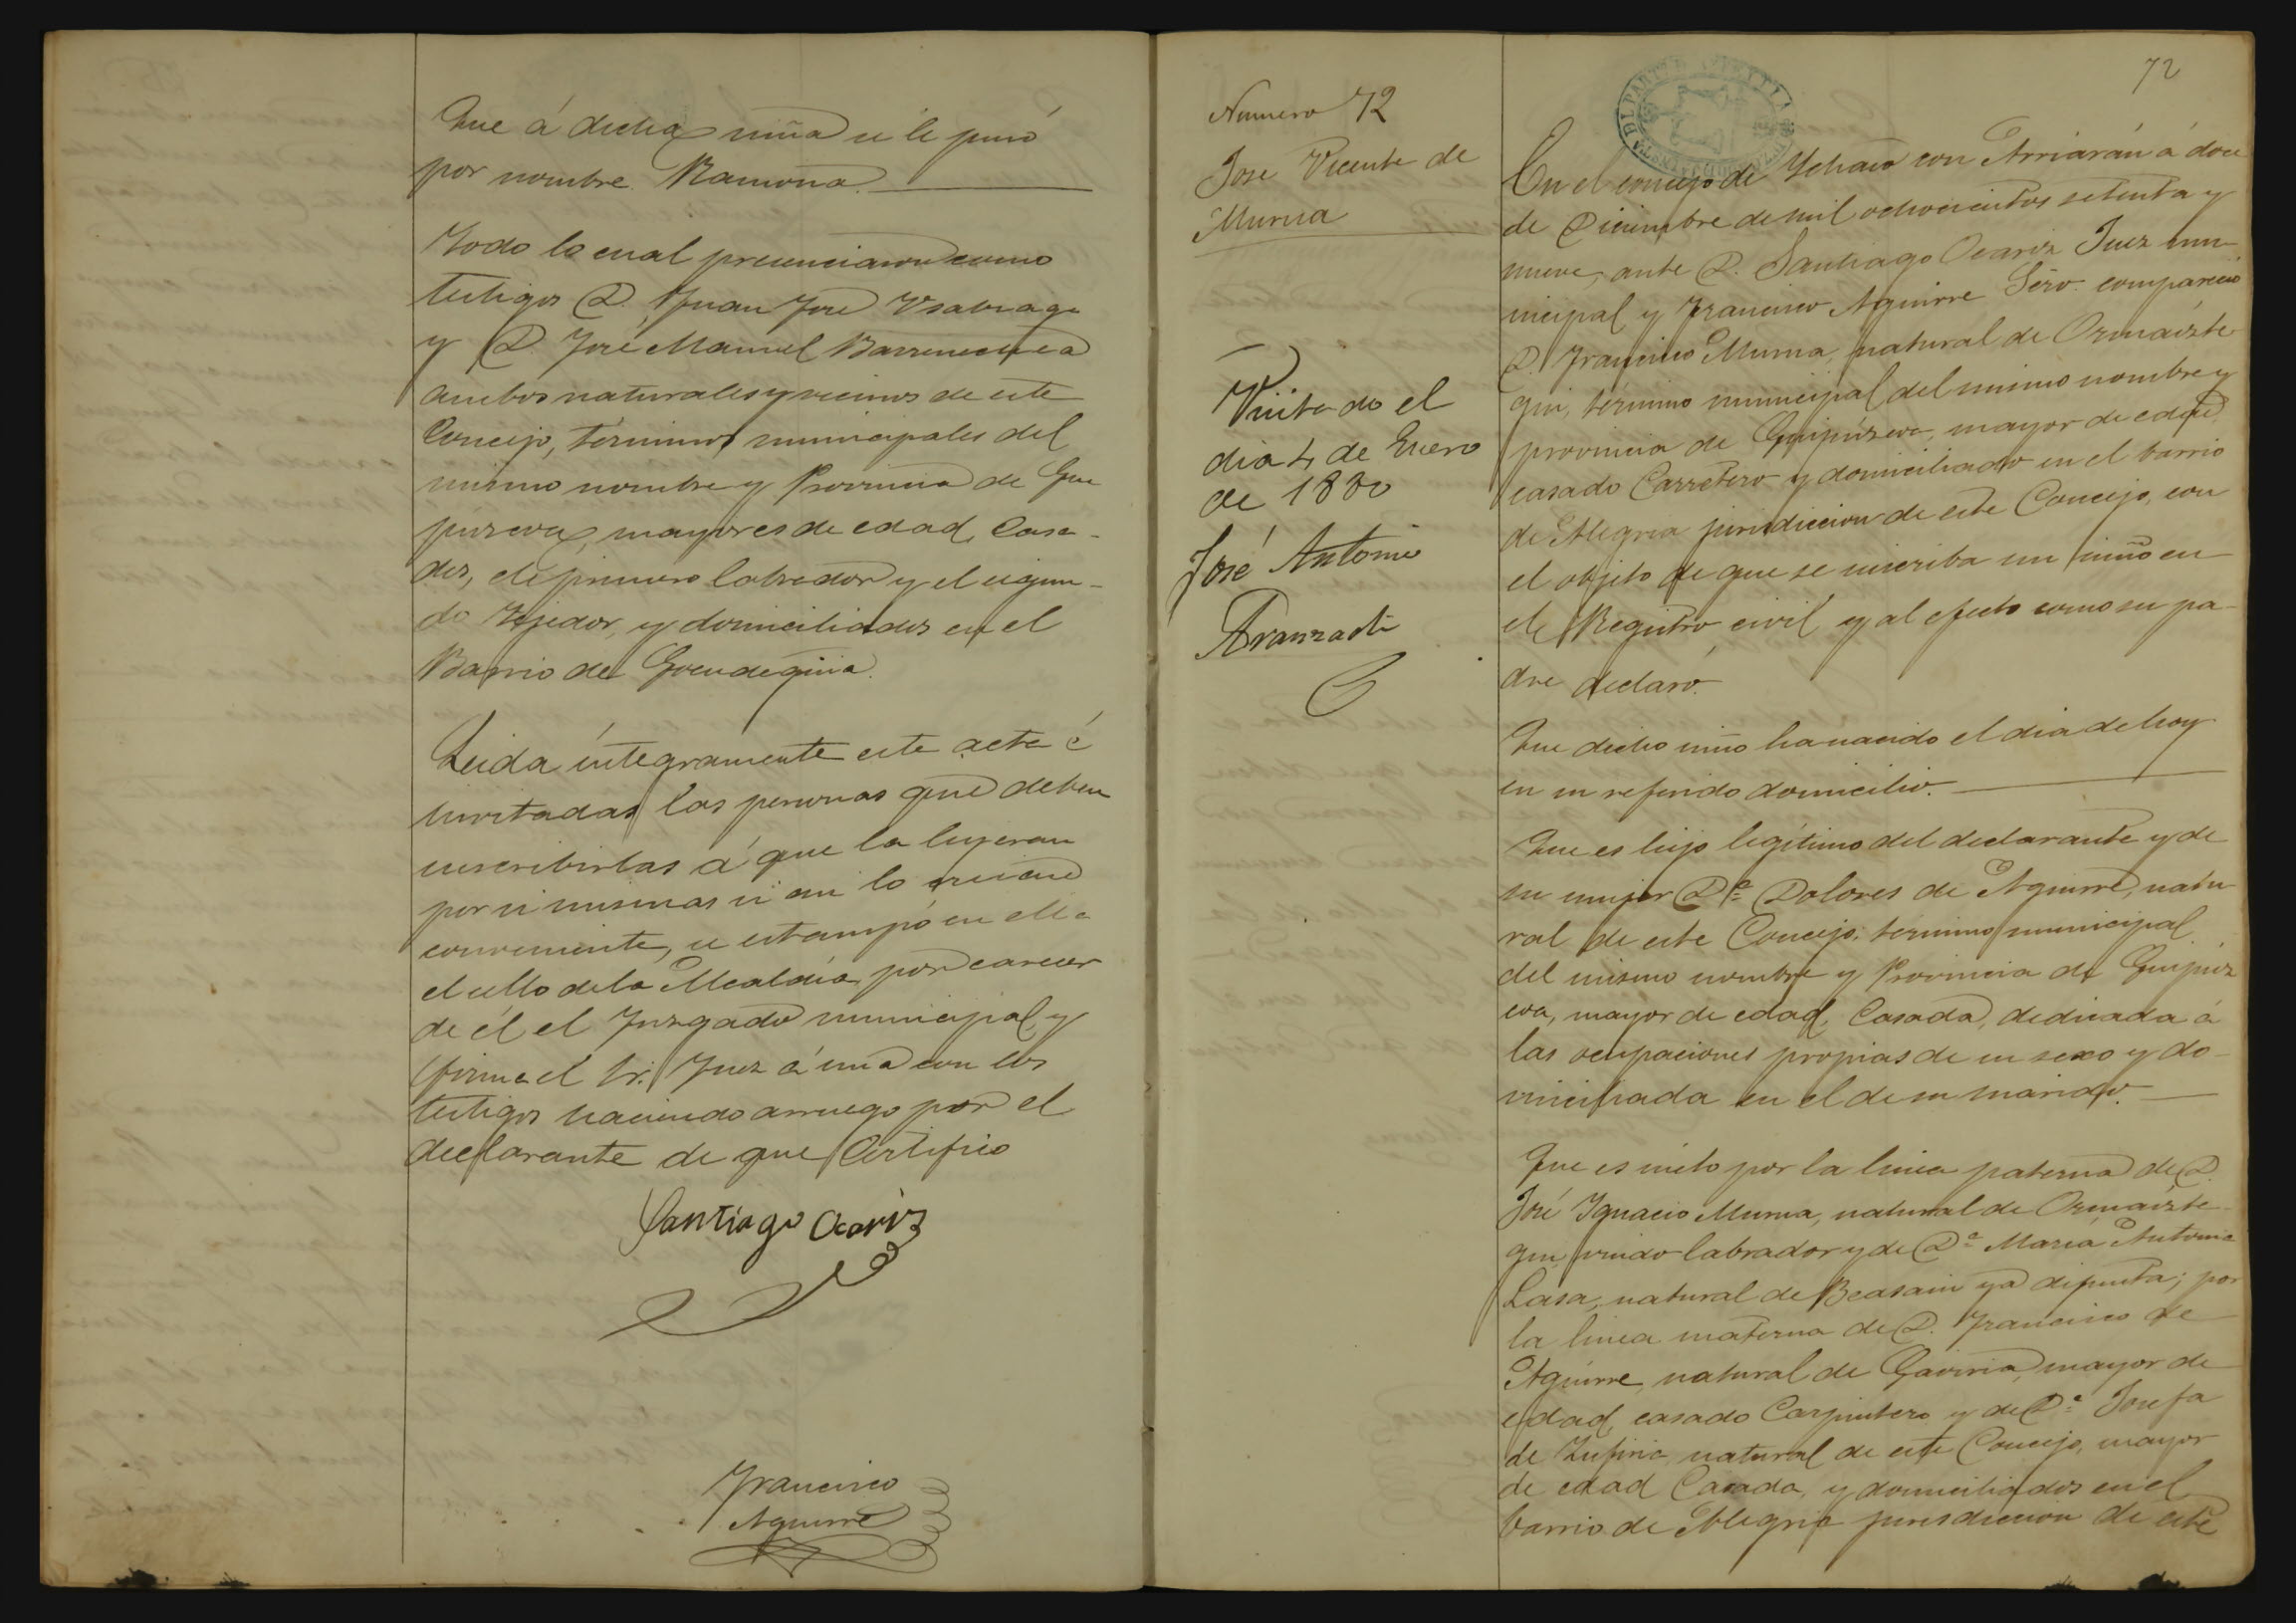 Que á dicha niña se le puso
por nombre Ramona.
Todo lo cual presenciaron como
testigos D. Juan José Usabiaga
y D. José Manuel Barrenechea
ambos naturales y vecinos de este
Concejo, términos municipales del
mismo nombre y Provincia de Gui
púzcoa, mayores de edad, Casa-
dos, el primero labrador y el segun-
do Tejedor, y domiciliados en el
Barrio de
Leida íntegramente este acta é
invitadas las personas que deben
suscribirlas á que la leyeran
por si mismas si asi lo creian
conveniente, se estampó en ella
el sello de la Alcaldía por carecer
de él el Juzgado municipal, y
firma el Sr. Juez á una con los
testigos haciendo a ruego por el
declarante de que Certifico
Santiago Ocariz
Francisco
Aguirre
Numero 72
Jose Vicente de
Murua
Visitado el
dia 4 de Enero
de 1880
José Antonio
Aranzadi
72
En el concejo de Ychaso con Arriarán á doce
de Diciembre de mil ochocientos setenta y
nueve, ante D. Santiago Ocariz Juez mu-
nicipal y Francisco Aguirre Srio. compareció
D. Francisco Murua, natural de Ormaizte-
gui, término municipal del mismo nombre y
provincia de Guipúzcoa, mayor de edad,
casado Carretero y domiciliado en el barrio
de Alegria jurisdiccion de este Concejo, con
el objeto de que se inscriba un niño en
el Registro civil y al efecto como su pa-
dre declaró.
Que dicho niño ha nacido el dia de hoy
en su referido domicilio.
Que es hijo legítimo del declarante y de
su mujer Dª Dolores de Aguirre, natu
ral de este Concejo, término municipal
del mismo nombre y Provincia de Guipúz
coa, mayor de edad, Casada, dedicada á
las ocupaciones propias de su sexo y do-
miciliada en el de su marido.
Que es nieto por la linea paterna de D.
José Ignacio Murua, natural de Ormaizte-
gui viudo labrador y de Dª María Antonia
Lasa, natural de Beasain ya difunta; por
la linea materna de D. Francisco de
Aguirre, natural de Gaviria, mayor de
edad, casado Carpintero y de Dª Josefa
de Zufiria natural de este Concejo, mayor
de edad Casada, y domiciliados en el
barrio de Alegria jurisdiccion de este